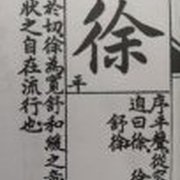 徐
平
序平聲從
迨曰徐
徐
舒徐
於切徐為寬舒和緩之意
狀之自在流行也